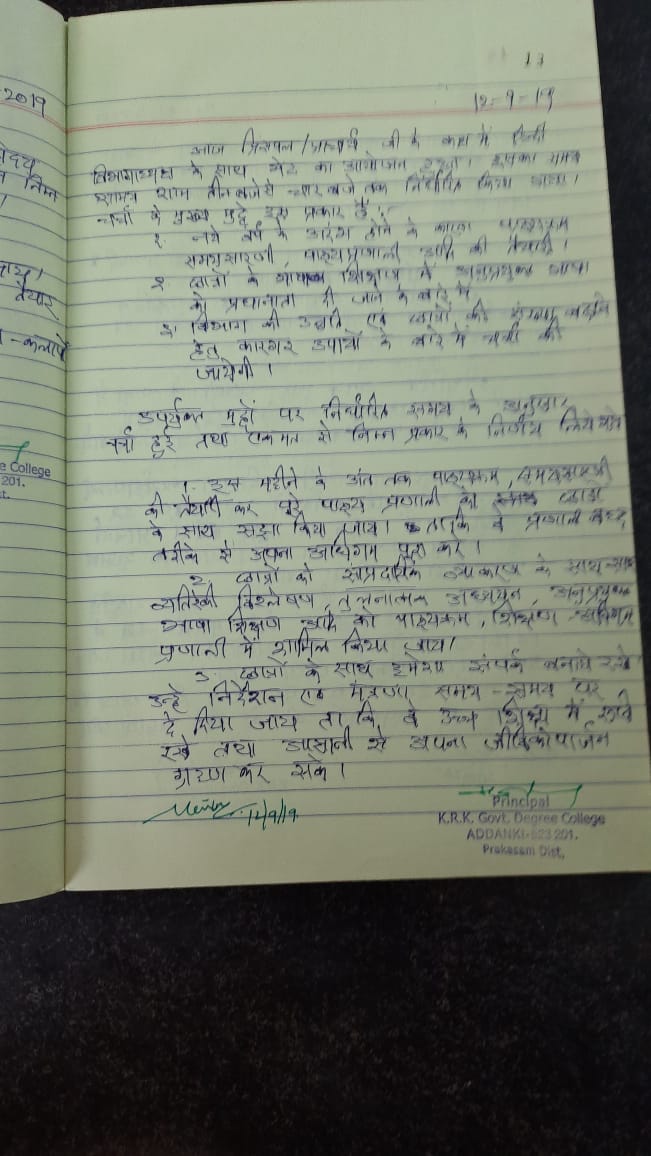 2019
निम्न
तैयार
e College
201.
st.
13
12-9-19
आज प्रिंसपल/प्राचार्य जी के कक्ष में हिन्दी
विभागाध्यक्ष के साथ भेंट का आयोजन हुआ। इसका समय
शाम तीन बजे से चार बजे तक निर्धारित किया गया।
चर्चा के मुख्य मुद्दे इस प्रकार हैं :-
१. नये वर्ष के आरंभ होने के कारण पाठ्यक्रम
समयसारणी, पाठ्यप्रणाली आदि की तैयारी।
२. छात्रों के भाषा शिक्षण में अनुप्रयुक्त भाषा
को प्रधानता दी जाने के बारे में
३. विभाग की उन्नति एवं छात्रों की संख्या बढ़ाने
हेतु कारगर उपायों के बारे में चर्चा की
जायेगी।
उपर्युक्त मुद्दों पर निर्धारित समय के अनुसार
चर्चा हुई तथा एकमत से निम्न प्रकार के निर्णय लिये गये
1. इस महीने के अंत तक पाठ्यक्रम, समयसारणी
की तैयारी कर पूरे पाठ्य प्रणाली को छात्रों
के साथ साझा किया जाय। ताकि वे प्रणाली बध्द
तरीके से अपना अधिगम पूरा करें।
2. छात्रों को सांप्रदायिक व्याकरण के साथ-साथ
व्यतिरेकी विश्लेषण, तुलनात्मक अध्ययन, अनुप्रयुक्त
भाषा शिक्षण आदि को पाठ्यक्रम, शिक्षण अधिगम
प्रणाली में शामिल किया जाय।
3. छात्रों के साथ हमेशा संपर्क बनाये रखे
उन्हे निर्देशन एवं मंत्रणा समय-समय पर
दे दिया जाय ता कि वे उच्च शिक्षा में रुचि
रखे तथा आसानी से अपना जीविकोपार्जन
ग्रहण कर सके।
12/9/19
Principal
K.R.K. Govt. Degree College
ADDANKI-523 201.
Prakasam Dist,